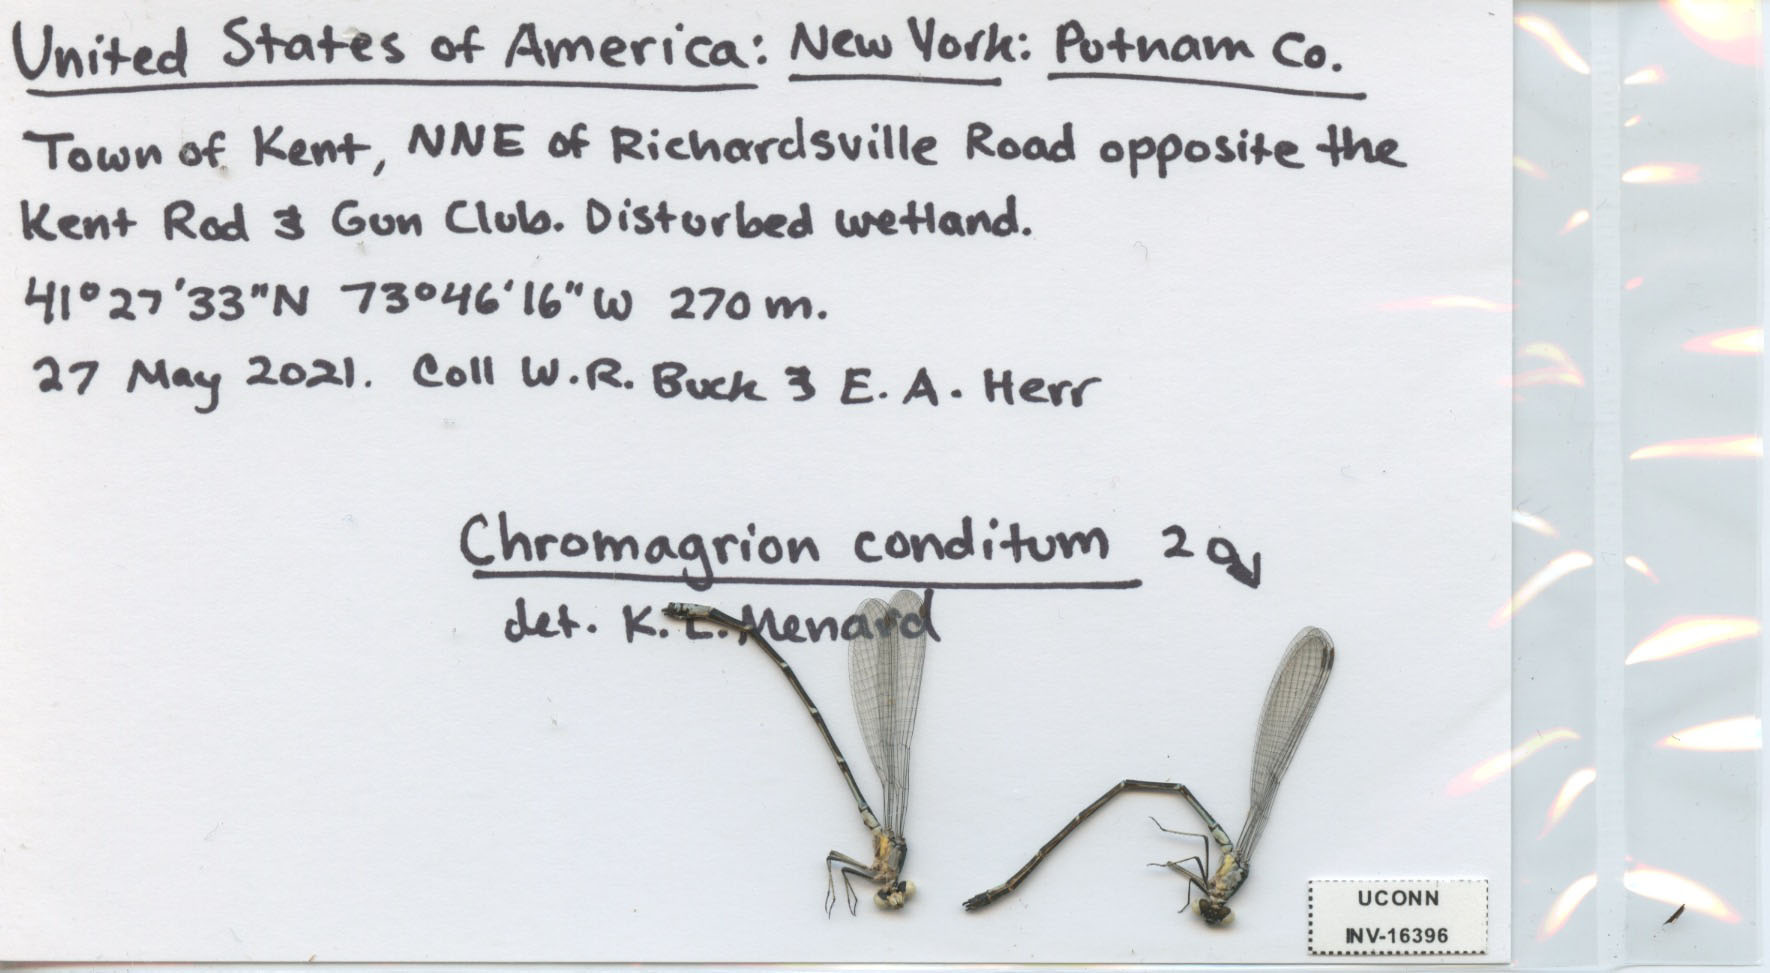 United States of America: New York: Putnam Co.
Town of Kent, NNE of Richardsville Road opposite the
Kent Rod & Gun Club. Disturbed wetland.
41°27'33"N 73°46'16"W 270 m.
27 May 2021. Coll W.R. Buck & E. A. Herr
Chromagrion conditum 2 ♂
det. K. L. Menard
UCONN
INV-16396